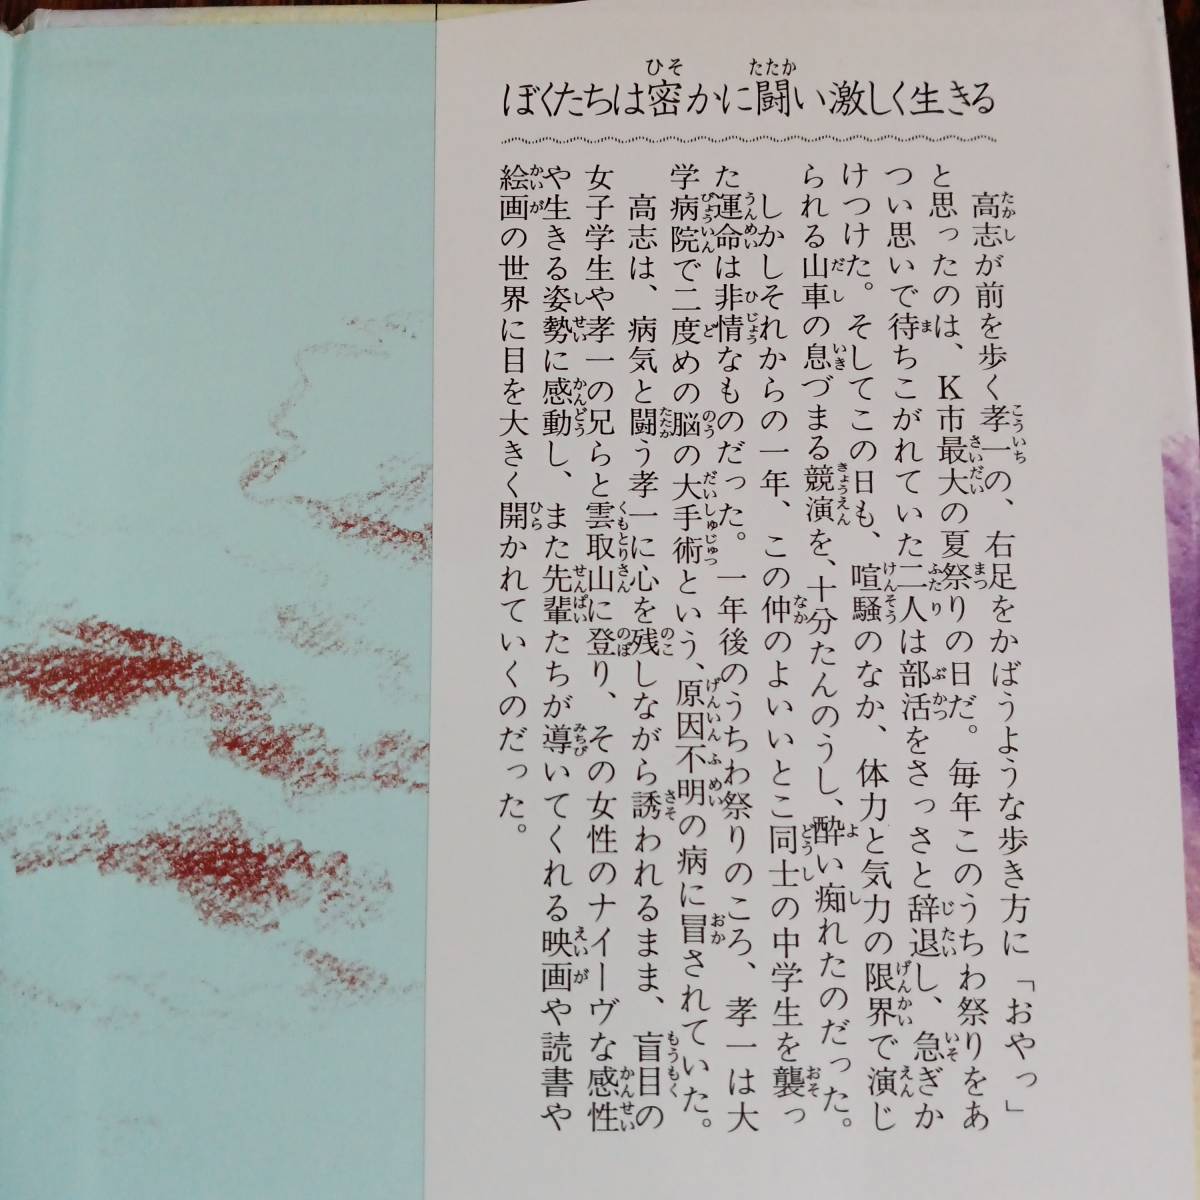 ぼくたちは密かに闘い激しく生きる
高志が前を歩く孝一の、右足をかばうような歩き方に「おやっ」
と思ったのは、K市最大の夏祭りの日だ。毎年このうちわ祭りをあ
つい思いで待ちこがれていた二人は部活をさっさと辞退し、急ぎか
けつけた。そしてこの日も、喧騒のなか、体力と気力の限界で演じ
られる山車の息づまる競演を、十分たんのうし、酔い痴れたのだった。
しかしそれからの一年、この仲のよいいとこ同士の中学生を襲っ
た運命は非情なものだった。一年後のうちわ祭りのころ、孝一は大
学病院で二度めの脳の大手術という、原因不明の病に冒されていた。
高志は、病気と闘う孝一に心を残しながら誘われるまま、盲目の
女子学生や孝一の兄らと雲取山に登り、その女性のナイーヴな感性
や生きる姿勢に感動し、また先輩たちが導いてくれる映画や読書や
絵画の世界に目を大きく開かれていくのだった。